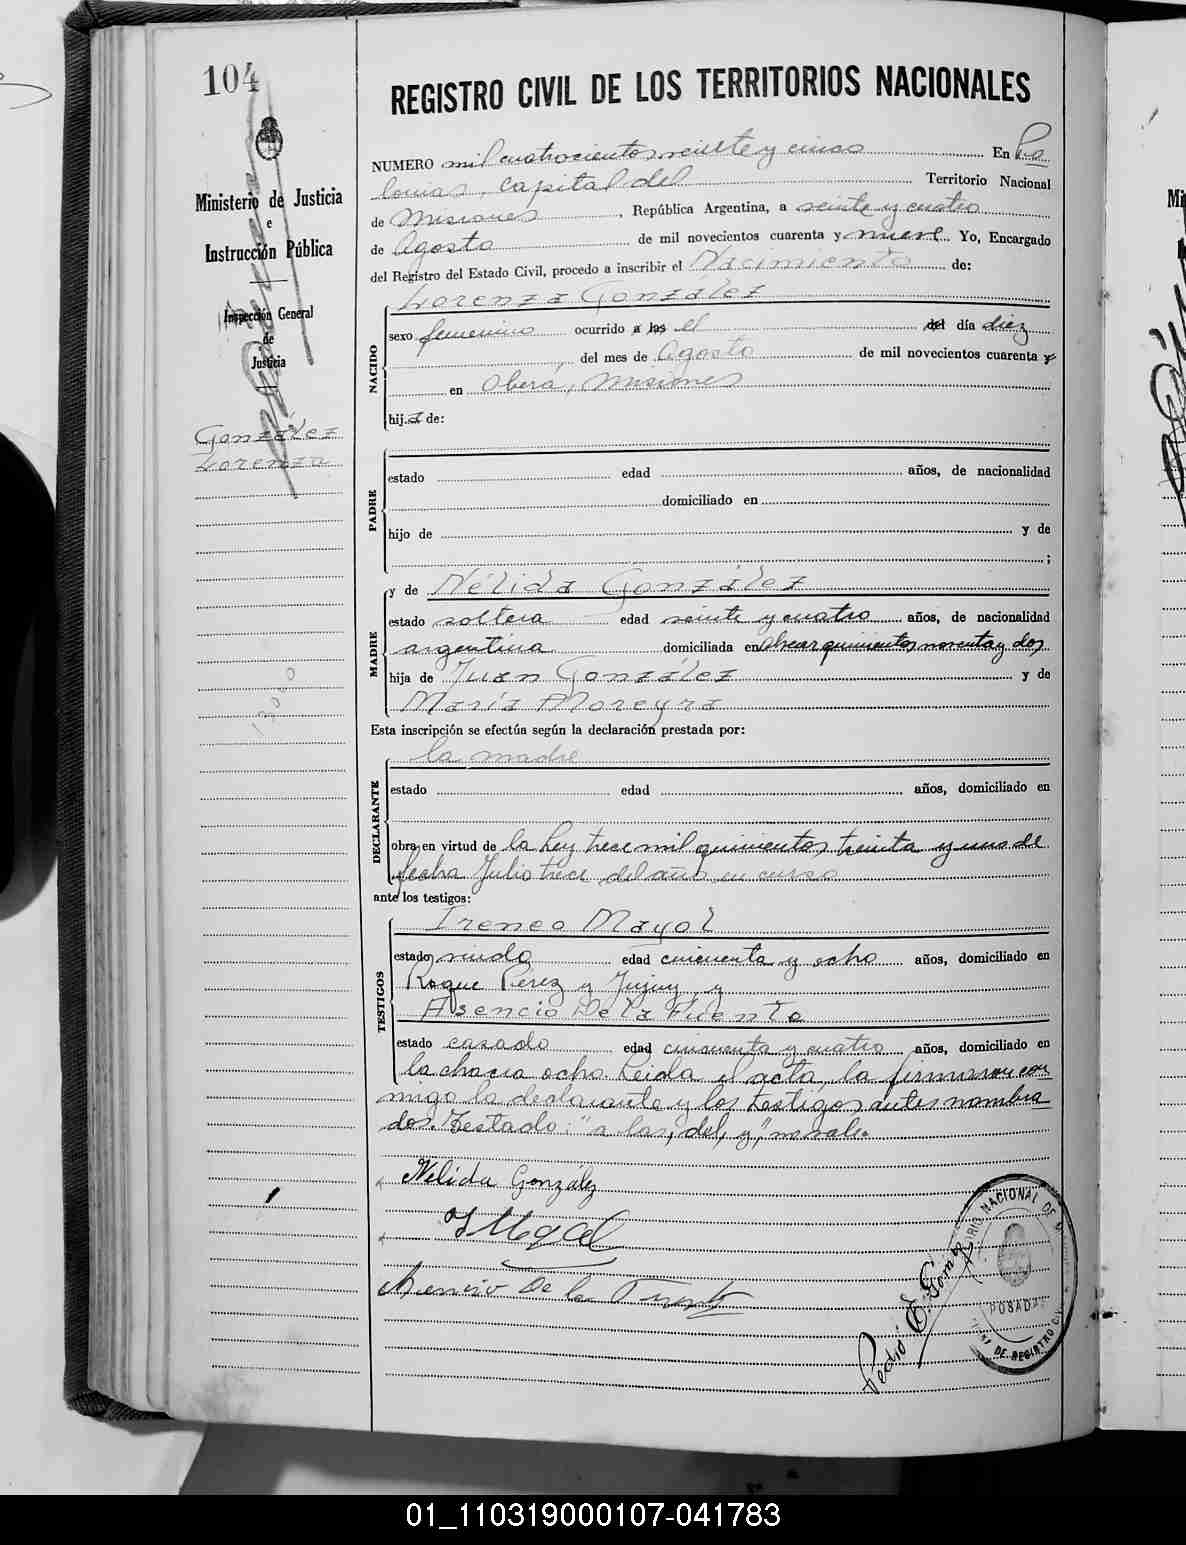 104
REGISTRO CIVIL DE LOS TERRITORIOS NACIONALES
Ministerio de Justicia
e
Instrucción Pública
Inspección General
de
Justicia
González
Lorenza
NUMERO mil cuatrocientos veinte y cinco En Po
sadas, Capital del Territorio Nacional
de Misiones, República Argentina, a veinte y cuatro
de Agosto de mil novecientos cuarenta y nueve Yo, Encargado
del Registro del Estado Civil, procedo a inscribir el Nacimiento de:
Lorenza González
NACIDO
sexo femenino ocurrido a las el del día diez
del mes de Agosto de mil novecientos cuarenta y
en Oberá, Misiones
hija de:
PADRE
estado edad años, de nacionalidad
domiciliado en
hijo de y de
;
y de Nélida González
MADRE
estado soltera edad veinte y cuatro años, de nacionalidad
argentina domiciliada en quinientos noventa y dos
hija de Juan González y de
María Moreyra
Esta inscripción se efectúa según la declaración prestada por:
la madre
DECLARANTE
estado edad años, domiciliado en
obra en virtud de la Ley trece mil quinientos treinta y uno de
fecha Julio trece del año en curso
ante los testigos:
Ireneo Mayol
TESTIGOS
estado viudo edad cincuenta y ocho años, domiciliado en
Roque Pérez y Jujuy, y
Asencio De la Fuente
estado casado edad cincuenta y cuatro años, domiciliado en
la chacra ocho. Leída el acta, la firmaron con
migo la declarante y los testigos antes nombra
dos. Testado: "a las, del, y", no vale.
Nélida González
Asencio De la Fuente
Pedro E. Gomez
NACIONAL DE
POSADAS
DE REGISTRO CIVIL
01_110319000107-041783